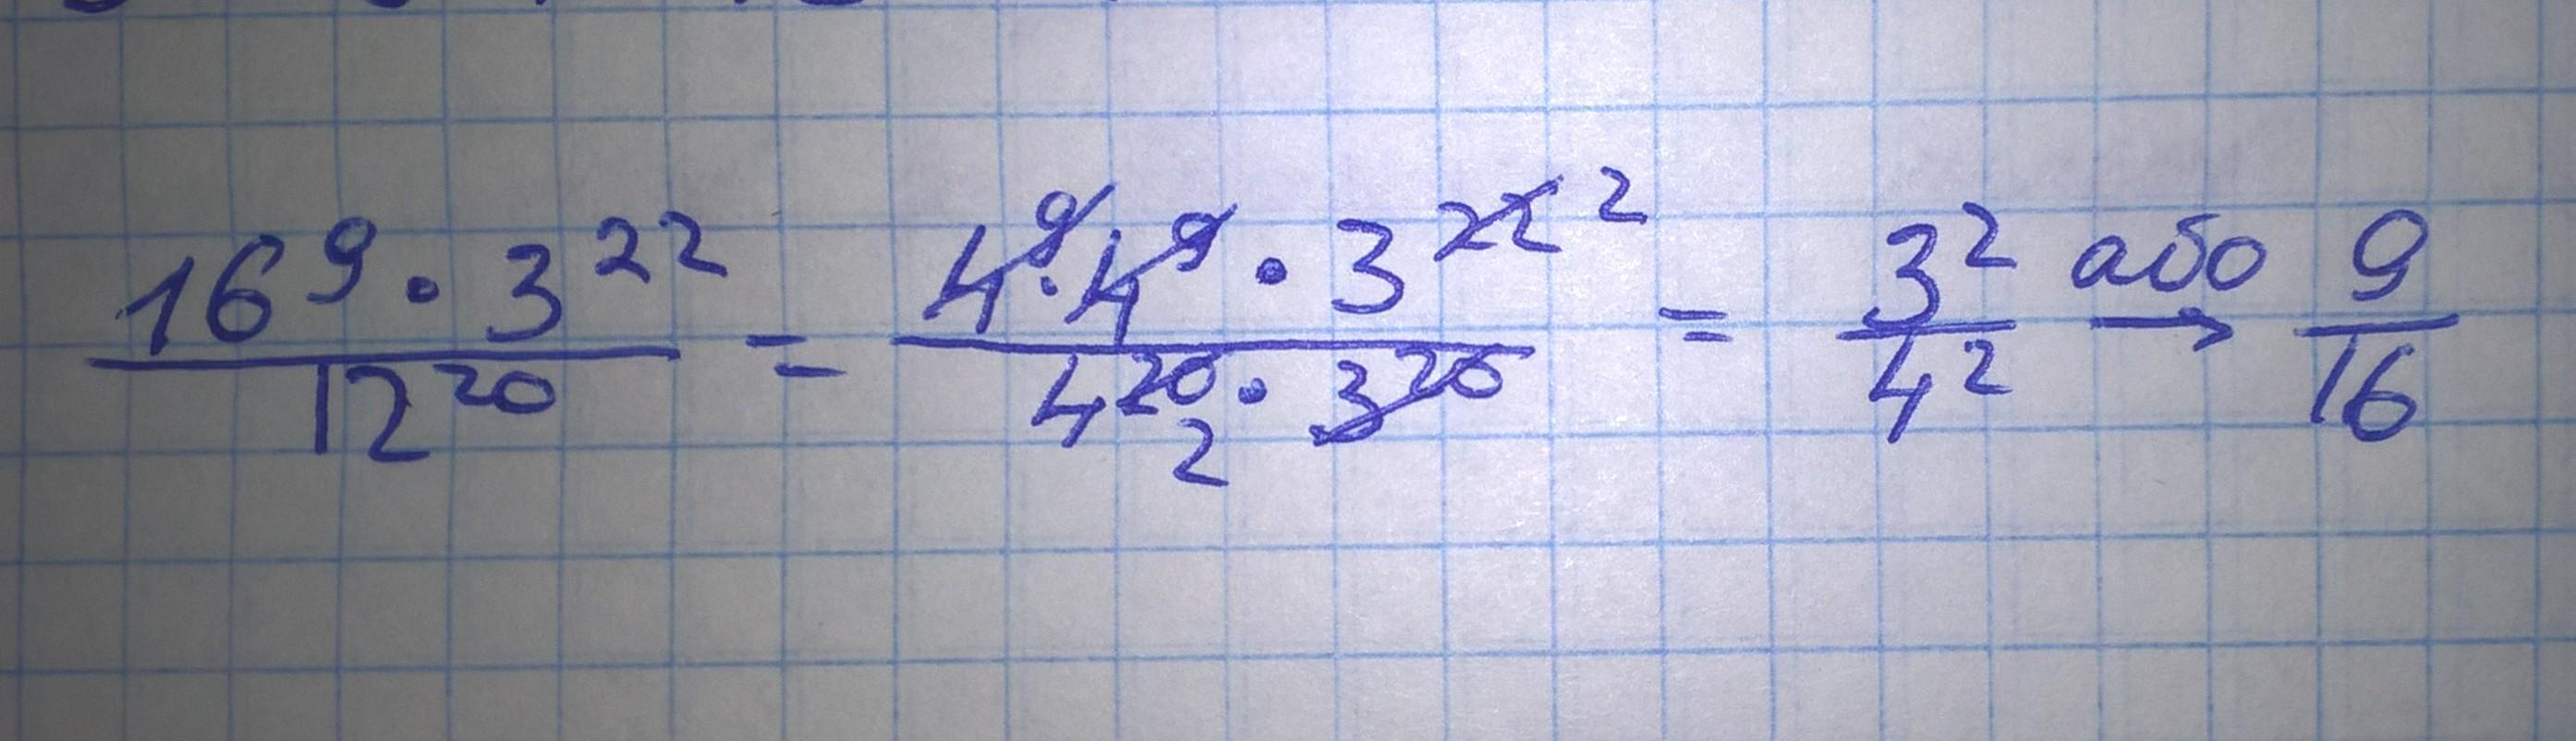 16⁹ · 3²² / 12²⁰ = 4⁹ · 4⁹ · 3²² ² / 4²⁰ ₂ · 3²⁰ = 3² / 4² або → 9 / 16